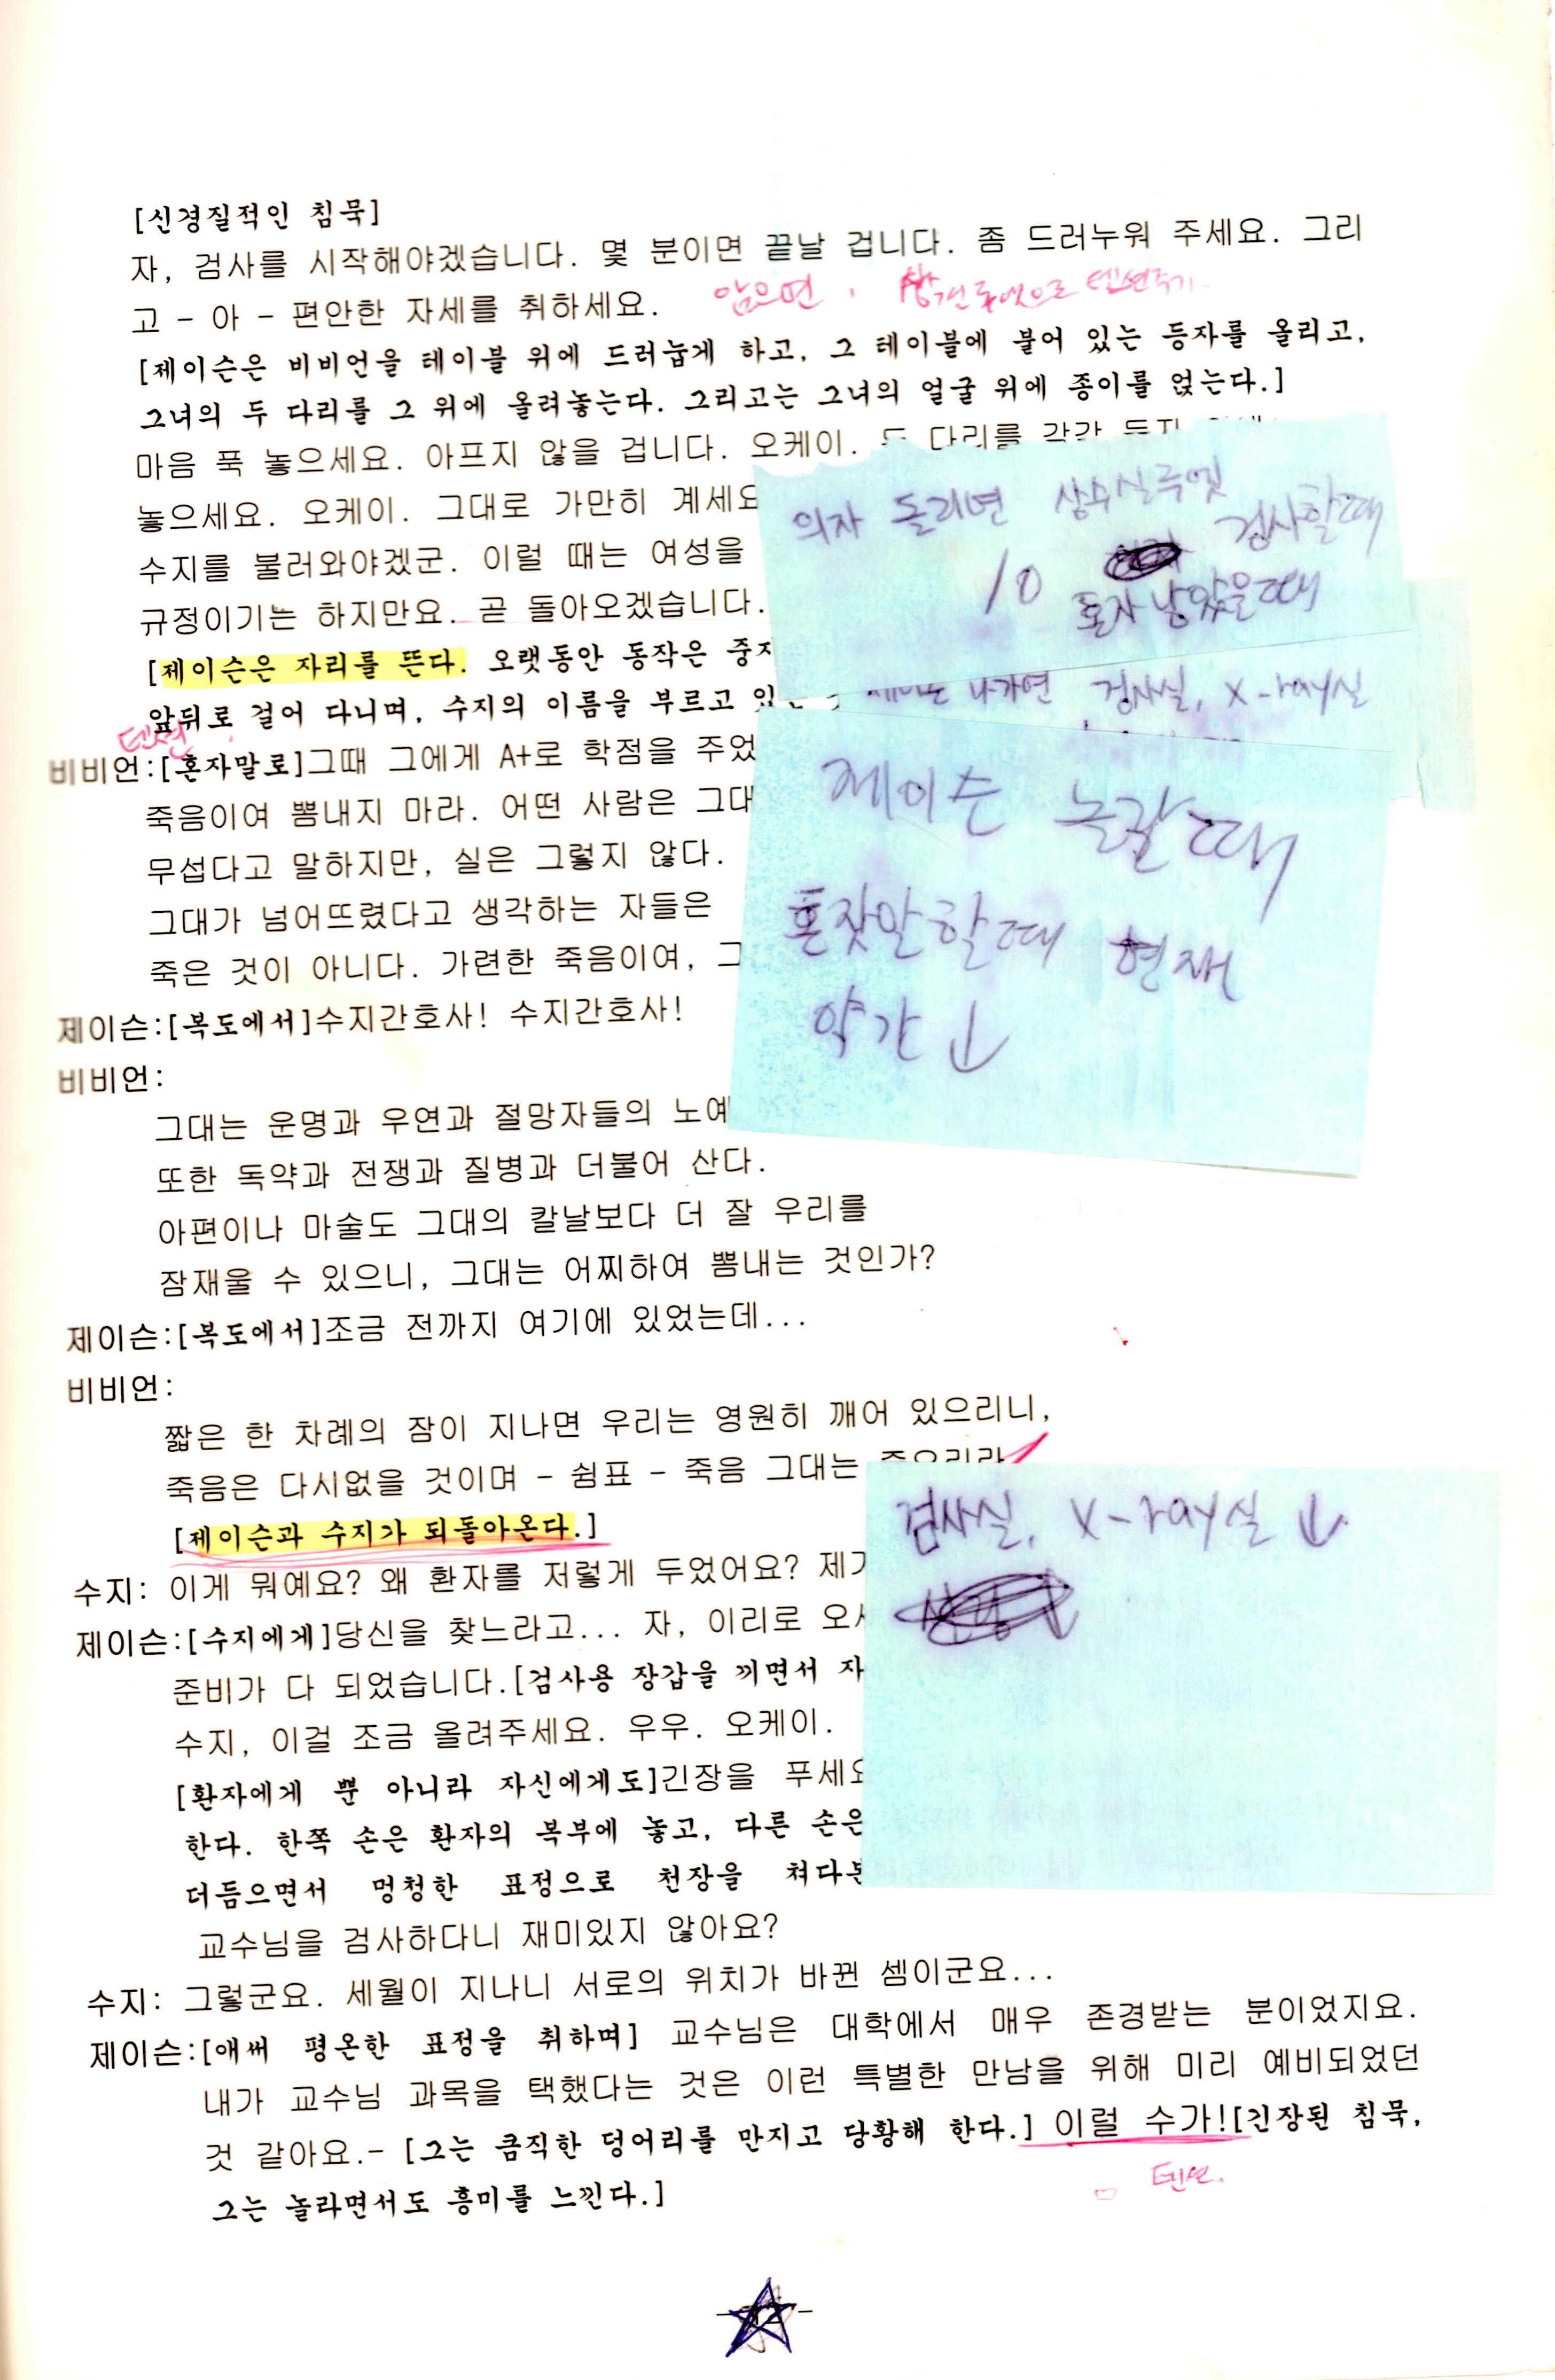 [신경질적인 침묵]
자, 검사를 시작해야겠습니다. 몇 분이면 끝날 겁니다. 좀 드러누워 주세요. 그리
고 - 아 - 편안한 자세를 취하세요.
앉으면, 텐션주기
[제이슨은 비비언을 테이블 위에 드러눕게 하고, 그 테이블에 붙어 있는 등자를 올리고,
그녀의 두 다리를 그 위에 올려놓는다. 그리고는 그녀의 얼굴 위에 종이를 얹는다.]
마음 푹 놓으세요. 아프지 않을 겁니다. 오케이. 두 다리를 각각
놓으세요. 오케이. 그대로 가만히 계세요
수지를 불러와야겠군. 이럴 때는 여성을
규정이기는 하지만요. 곧 돌아오겠습니다.
[제이슨은 자리를 뜬다. 오랫동안 동작은 중지
앞뒤로 걸어 다니며, 수지의 이름을 부르고 있는
텐션
비비언:[혼자말로]그때 그에게 A+로 학점을 주었
죽음이여 뽐내지 마라. 어떤 사람은 그대
무섭다고 말하지만, 실은 그렇지 않다.
그대가 넘어뜨렸다고 생각하는 자들은
죽은 것이 아니다. 가련한 죽음이여, 그
제이슨:[복도에서]수지간호사! 수지간호사!
비비언:
그대는 운명과 우연과 절망자들의 노예
또한 독약과 전쟁과 질병과 더불어 산다.
아편이나 마술도 그대의 칼날보다 더 잘 우리를
잠재울 수 있으니, 그대는 어찌하여 뽐내는 것인가?
제이슨:[복도에서]조금 전까지 여기에 있었는데...
비비언:
짧은 한 차례의 잠이 지나면 우리는 영원히 깨어 있으리니,
죽음은 다시없을 것이며 - 쉼표 - 죽음 그대는 죽으리라
[제이슨과 수지가 되돌아온다.]
수지: 이게 뭐예요? 왜 환자를 저렇게 두었어요? 제가
제이슨:[수지에게]당신을 찾느라고... 자, 이리로 오
준비가 다 되었습니다.[검사용 장갑을 끼면서 자
수지, 이걸 조금 올려주세요. 우우. 오케이.
[환자에게 뿐 아니라 자신에게도]긴장을 푸세요
한다. 한쪽 손은 환자의 복부에 놓고, 다른 손은
더듬으면서 멍청한 표정으로 천장을 쳐다본
교수님을 검사하다니 재미있지 않아요?
수지: 그렇군요. 세월이 지나니 서로의 위치가 바뀐 셈이군요...
제이슨:[애써 평온한 표정을 취하며] 교수님은 대학에서 매우 존경받는 분이었지요.
내가 교수님 과목을 택했다는 것은 이런 특별한 만남을 위해 미리 예비되었던
것 같아요.- [그는 큼직한 덩어리를 만지고 당황해 한다.] 이럴 수가![긴장된 침묵,
텐션.
그는 놀라면서도 흥미를 느낀다.]
의자 돌리면 상수실루엣
검사할때
10 혼자 남았을때
제이슨 나가면 검사실, X-ray실
제이슨 놀랄때
혼잣말할때 현재
약간 ↓
검사실, X-ray실 ↓